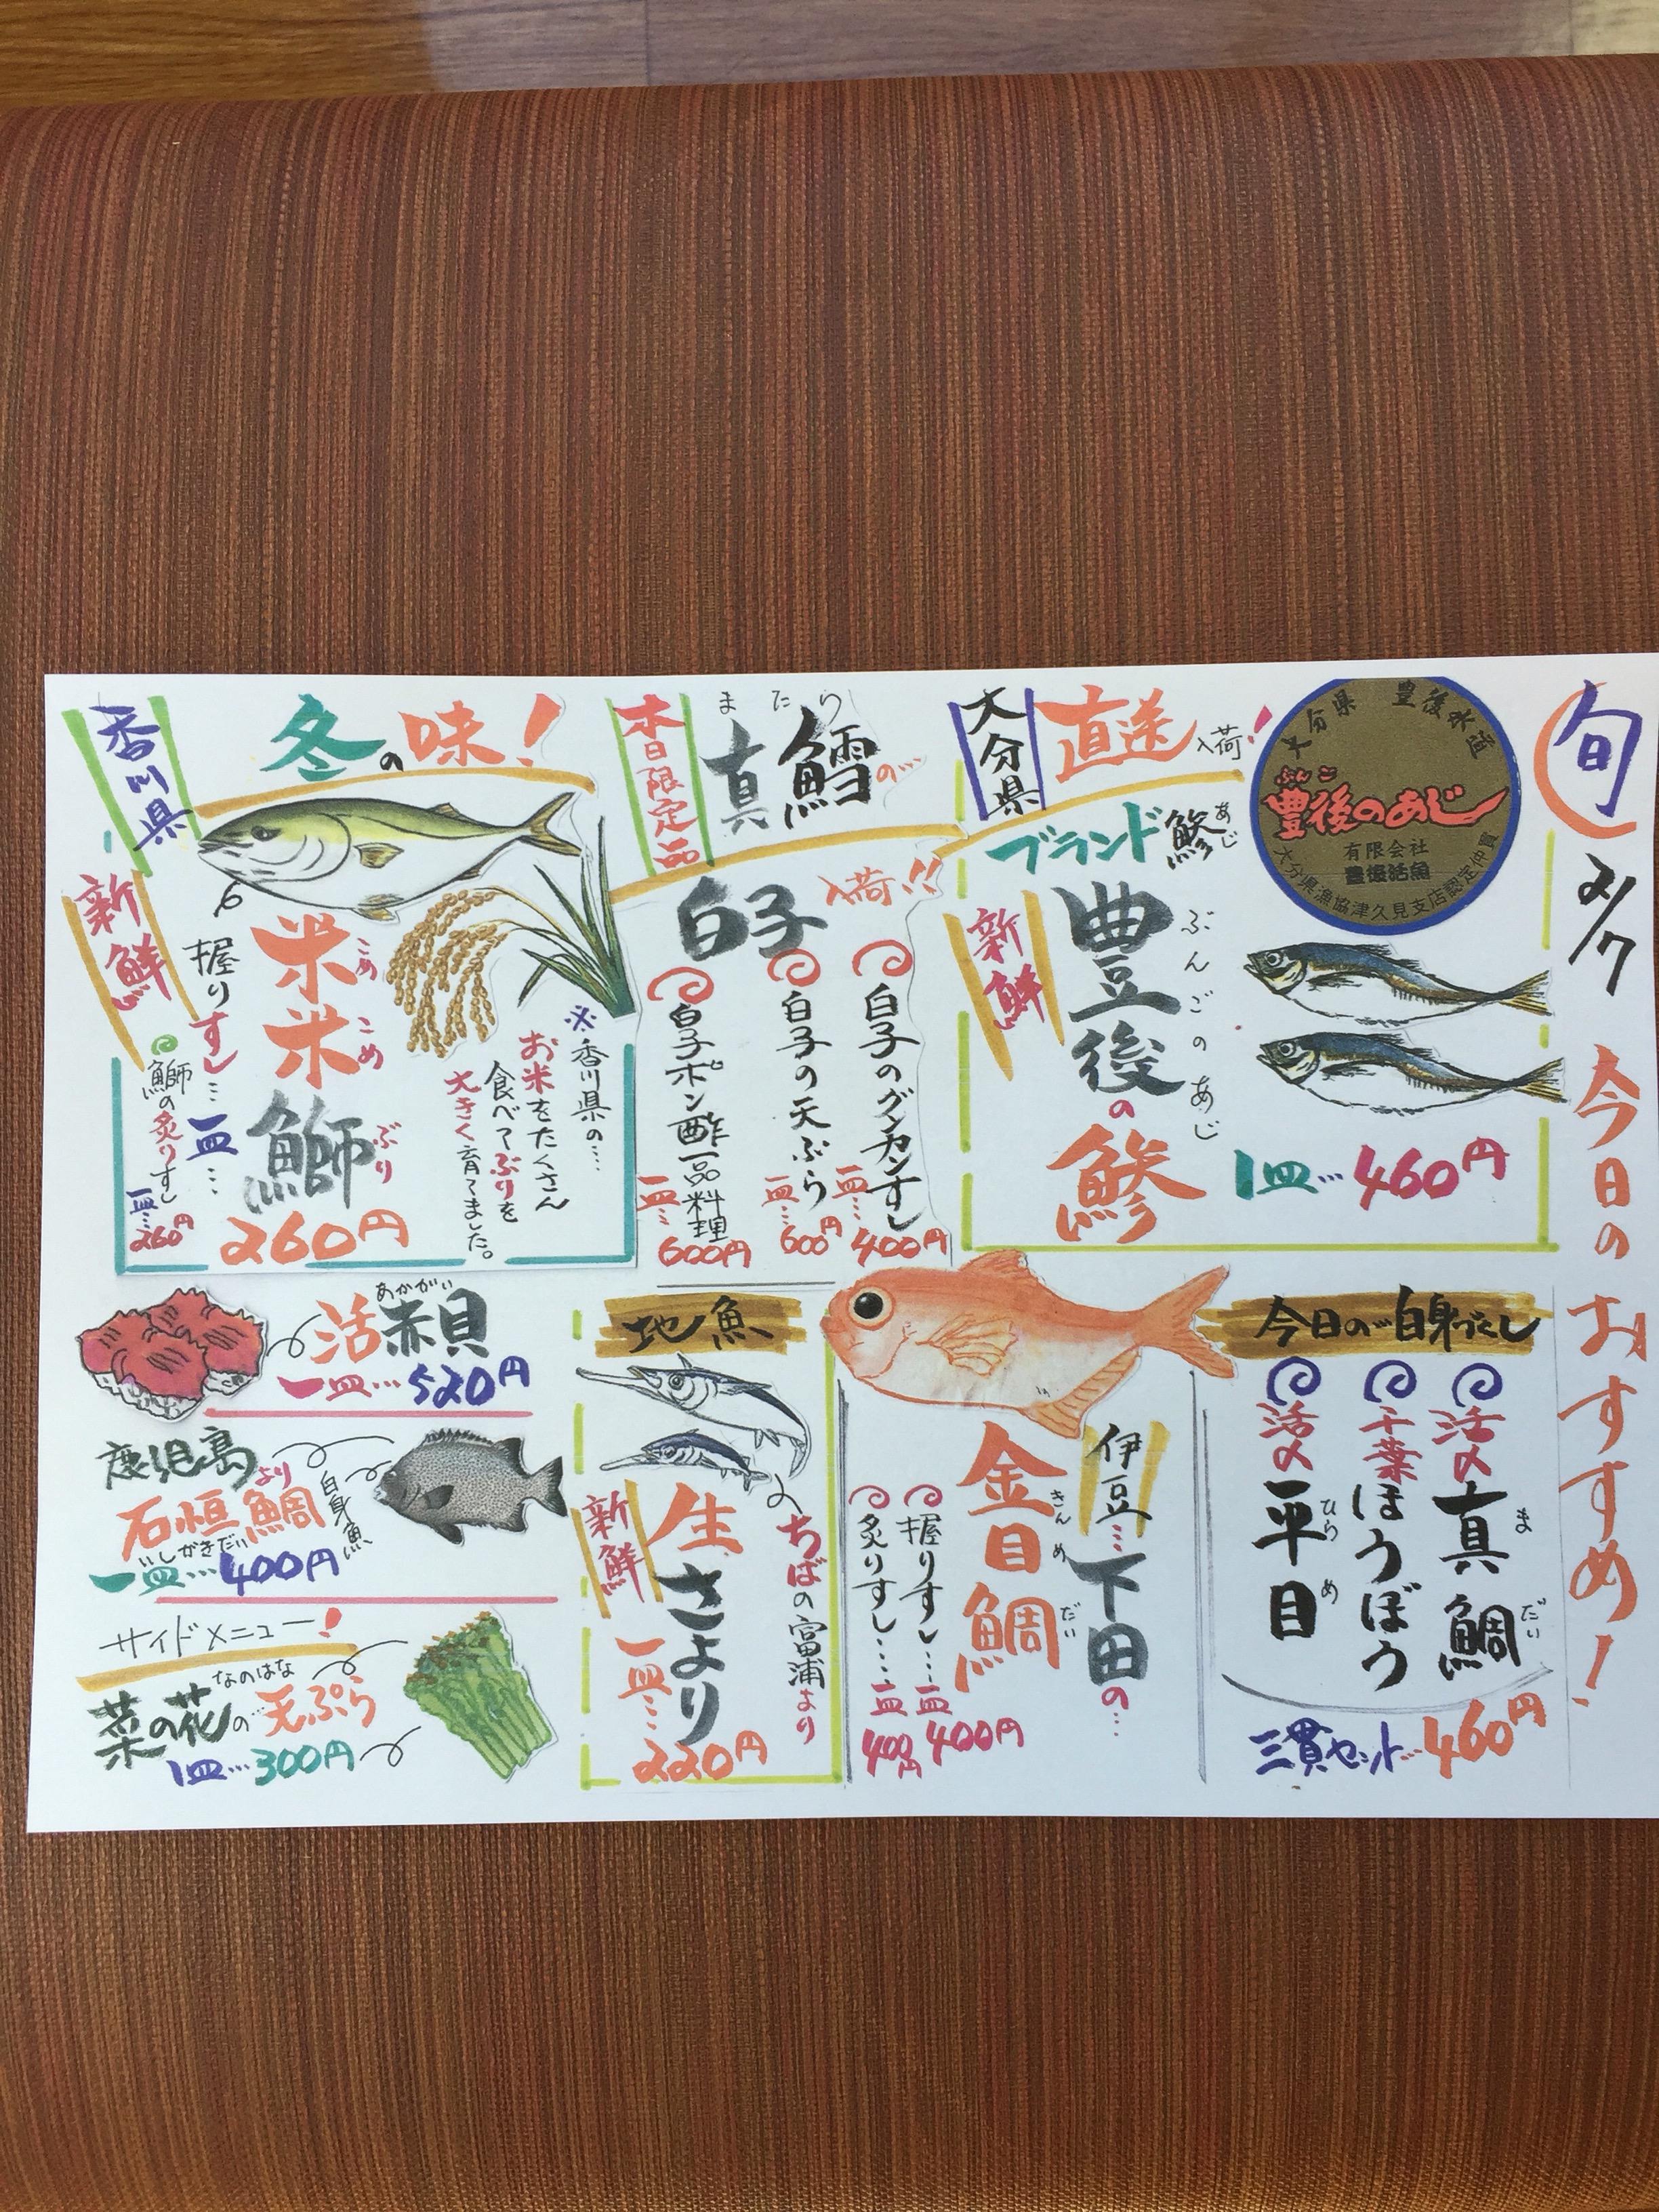 旬
2/7
今日のおすすめ!
大分県
直送
入荷!
ブランド鯵
あじ
新鮮
豊後の鯵
ぶんごのあじ
1皿…460円
大分県 豊後水道
ぶんご
豊後のあじ
有限会社
豊後活魚
大分県漁協津久見支店認定仲買
本日限定品
またら
真鱈の…
白子
入荷!!
白子のグンカンすし
一皿…400円
白子の天ぷら
一皿…600円
白子ポン酢一品料理
一皿…600円
香川県
冬の味!
新鮮
米米鰤
こめこめぶり
握りすし…一皿…
260円
鰤の炙りすし
一皿…260円
※香川県の…
お米をたくさん
食べてぶりを
大きく育てました。
今日の…白身づくし
活〆真鯛
まだい
千葉ほうぼう
活〆平目
ひらめ
三貫セット…460円
伊豆…下田の…
金目鯛
きんめだい
握りすし…一皿400円
炙りすし…一皿400円
地魚
ちばの富浦より
新鮮
生さより
一皿…220円
あかがい
活赤貝
一皿…520円
鹿児島より
石垣鯛
いしがきだい
白身魚
一皿…400円
サイドメニュー!
なのはな
菜の花の天ぷら
1皿…300円